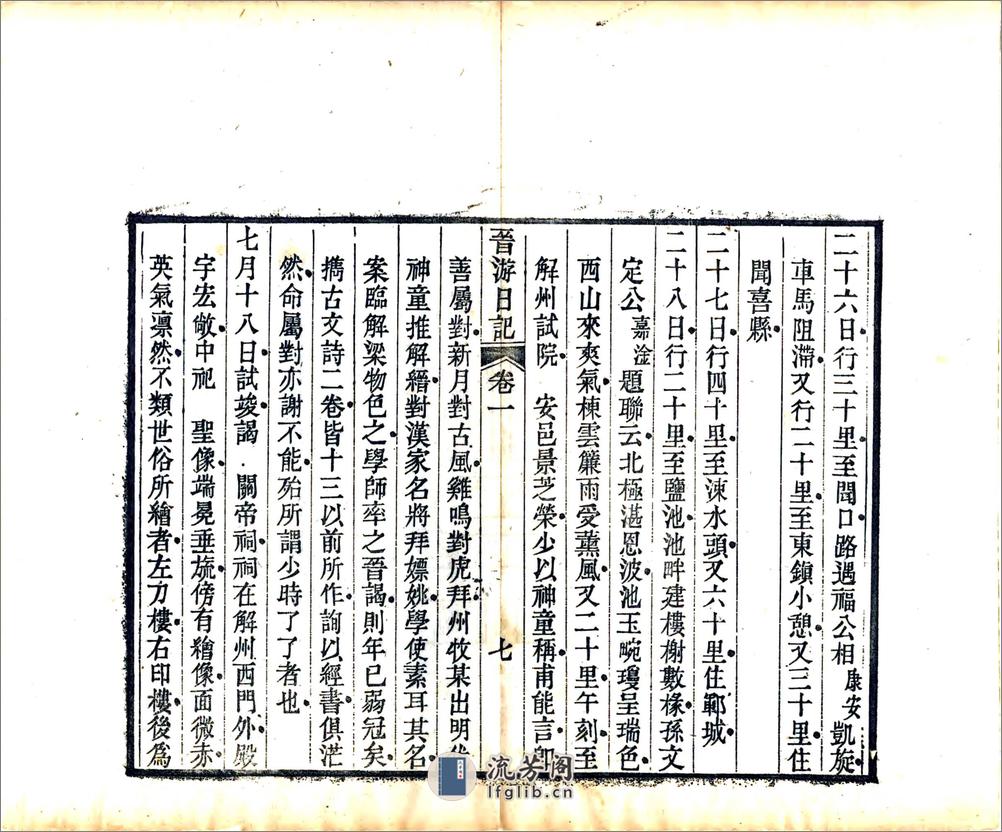 二十六日行三十里至聞口路遇福公相康安凱旋
車馬阻滯又行二十里至東鎮小憩又三十里住
聞喜縣
二十七日行四十里至涑水頭又六十里住郭城
二十八日行二十里至鹽池池畔建樓榭數椽孫文
定公嘉淦題聯云北極湛恩波池玉畹瓊呈瑞色
西山來爽氣棟雲簾雨愛薰風又二十里午刻至
解州試院 安邑景芝榮少以神童稱甫能言卽
晉游日記 卷一 七
善屬對新月對古風雞鳴對虎拜州牧某出明
神童推解縉對漢家名將拜嫖姚學使素耳其名
案臨解梁物色之學師率之晉謁則年已弱冠矣
攜古文詩二卷皆十三以前所作詢以經書俱茫
然命屬對亦謝不能殆所謂少時了了者也
七月十八日試竣謁 關帝祠祠在解州西門外殿
宇宏敞中祀 聖像端冕垂旒傍有繪像面微赤
英氣凛然不類世俗所繪者左刀樓右印樓後爲
流芳阁
lfglib.cn